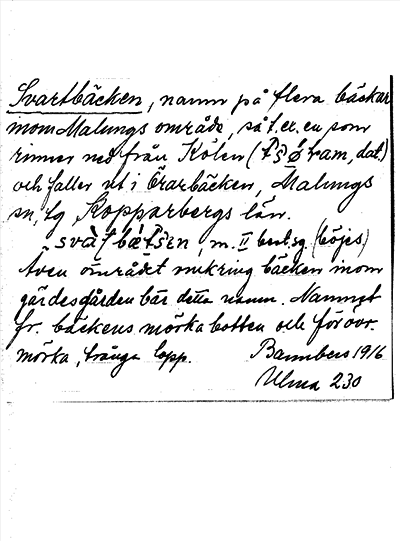 Svartbäcken, namn på flera bäckar
inom Malungs område, så t. ex. en som
rinner ned från Kölen (
och faller ut i Örarbäcken, Malungs
sn, fg Kopparbergs län.
m. II best. sg. (böjes)
Även området omkring bäcken inom
gärdesgården bär detta namn. Namnet
fr. bäckens mörka botten och för övr.
mörka, trånga lopp. Bannbers 1916
Ulma 230